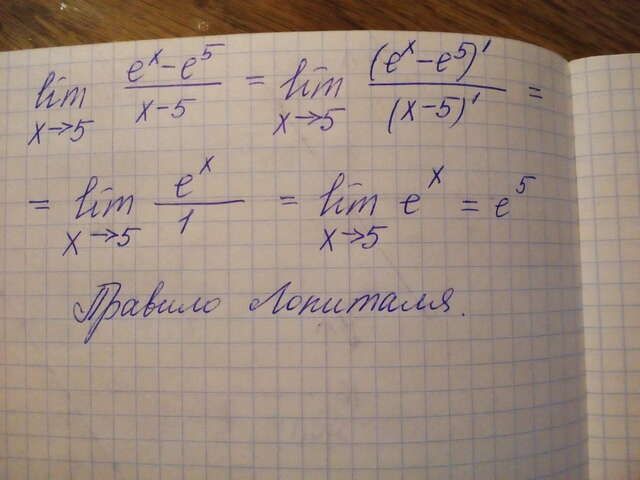 lim x→5 (e^x − e^5)/(x − 5) = lim x→5 (e^x − e^5)'/(x − 5)' =
= lim x→5 e^x/1 = lim x→5 e^x = e^5
Правило Лопиталя.